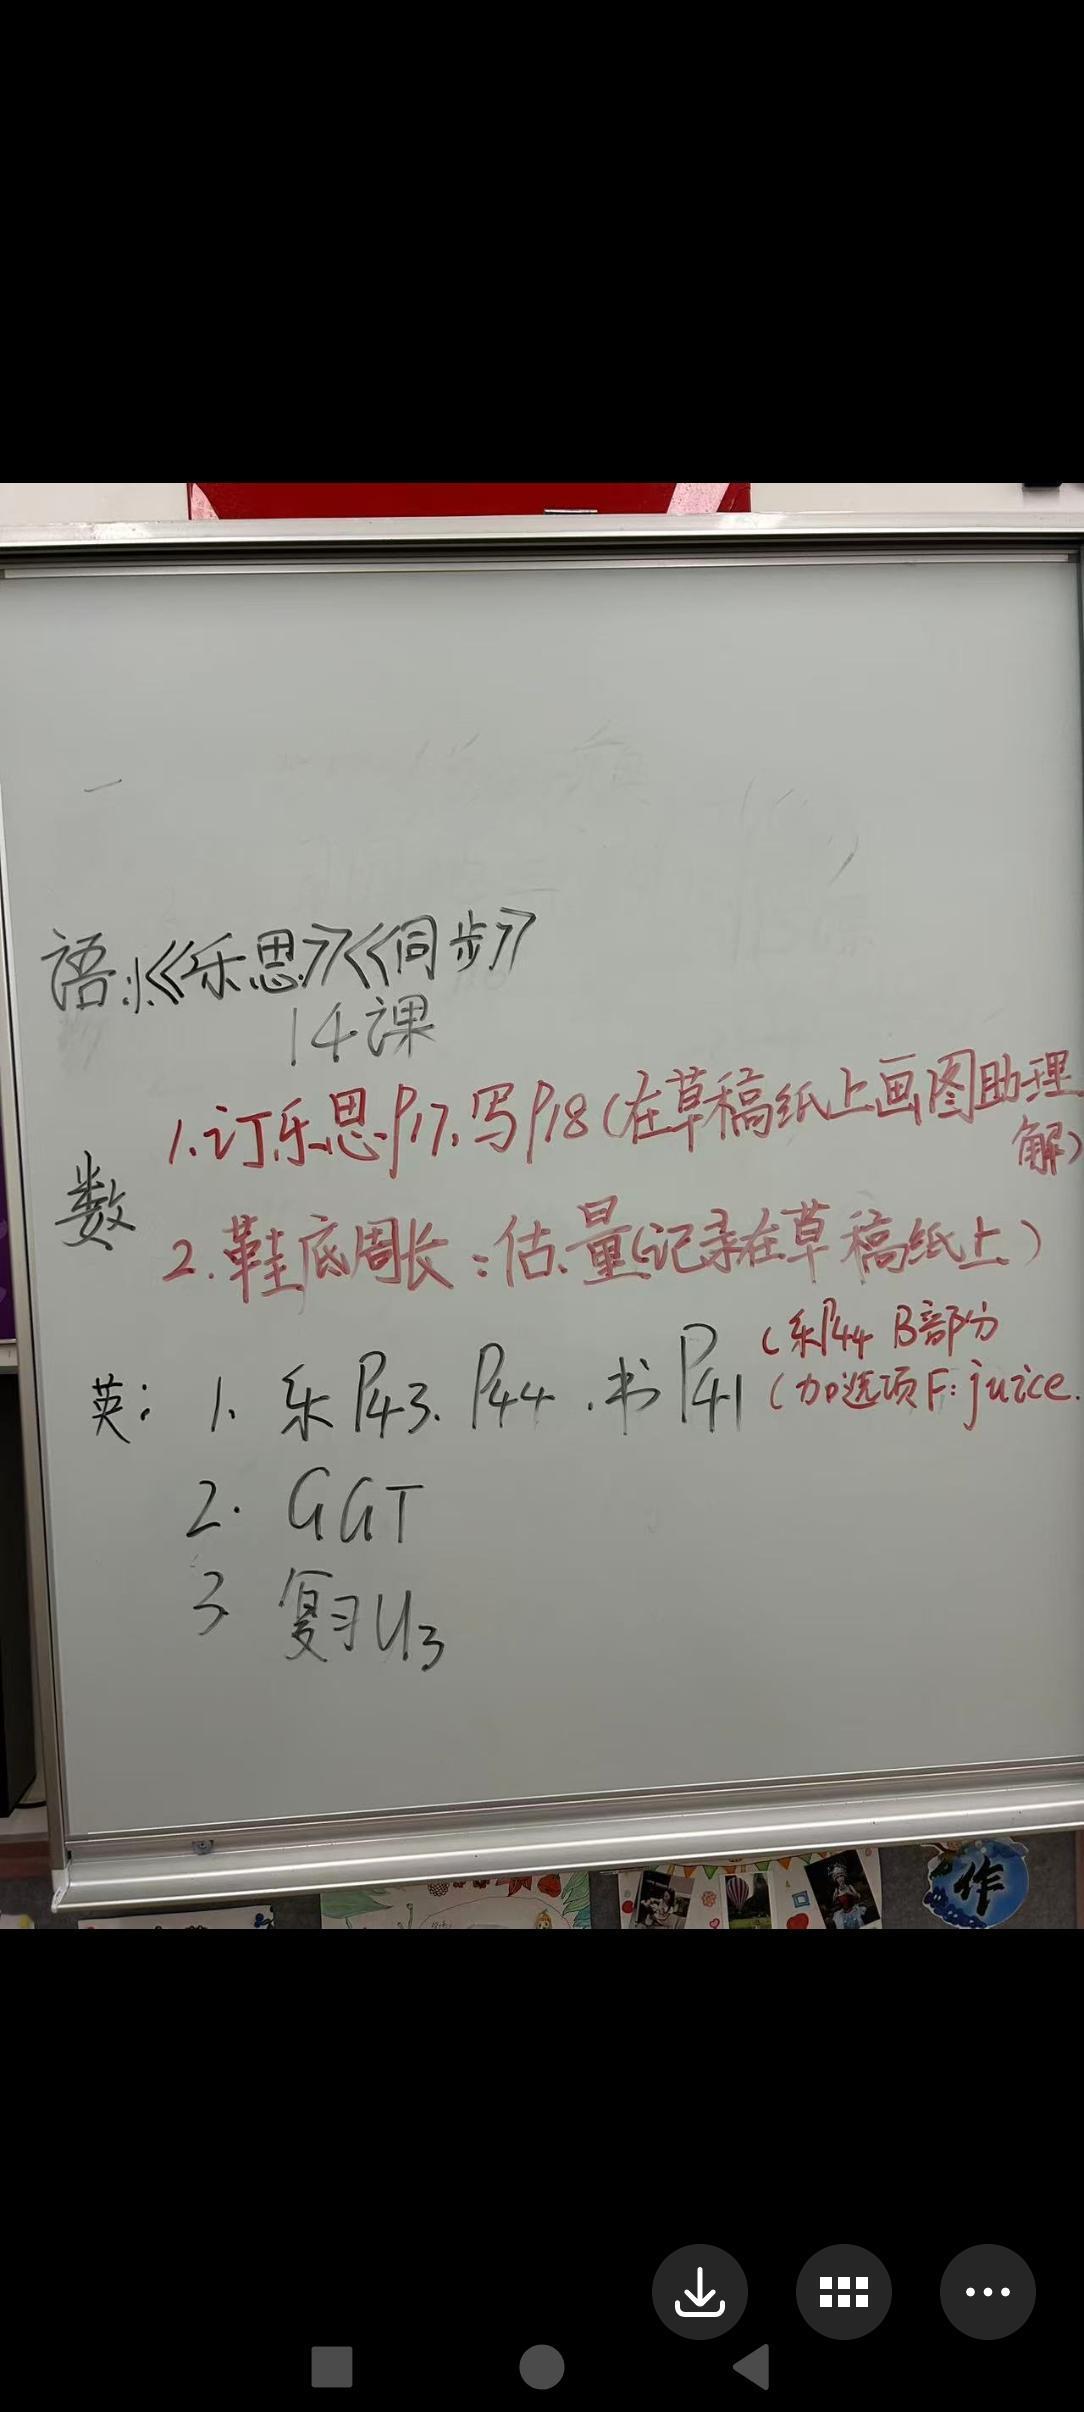 語:《乐思》《同步》
14课
数
1.订乐思P17,写P18(在草稿纸上画图助理
解)
2.鞋底周长:估、量(记录在草稿纸上)
英: 1、乐P43、P44、书P41
(乐P44 B部分
(加选项F:juice.
2. GGT
3 复习U3
作